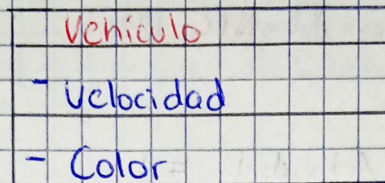 Vehiculo
- Velocidad
- Color